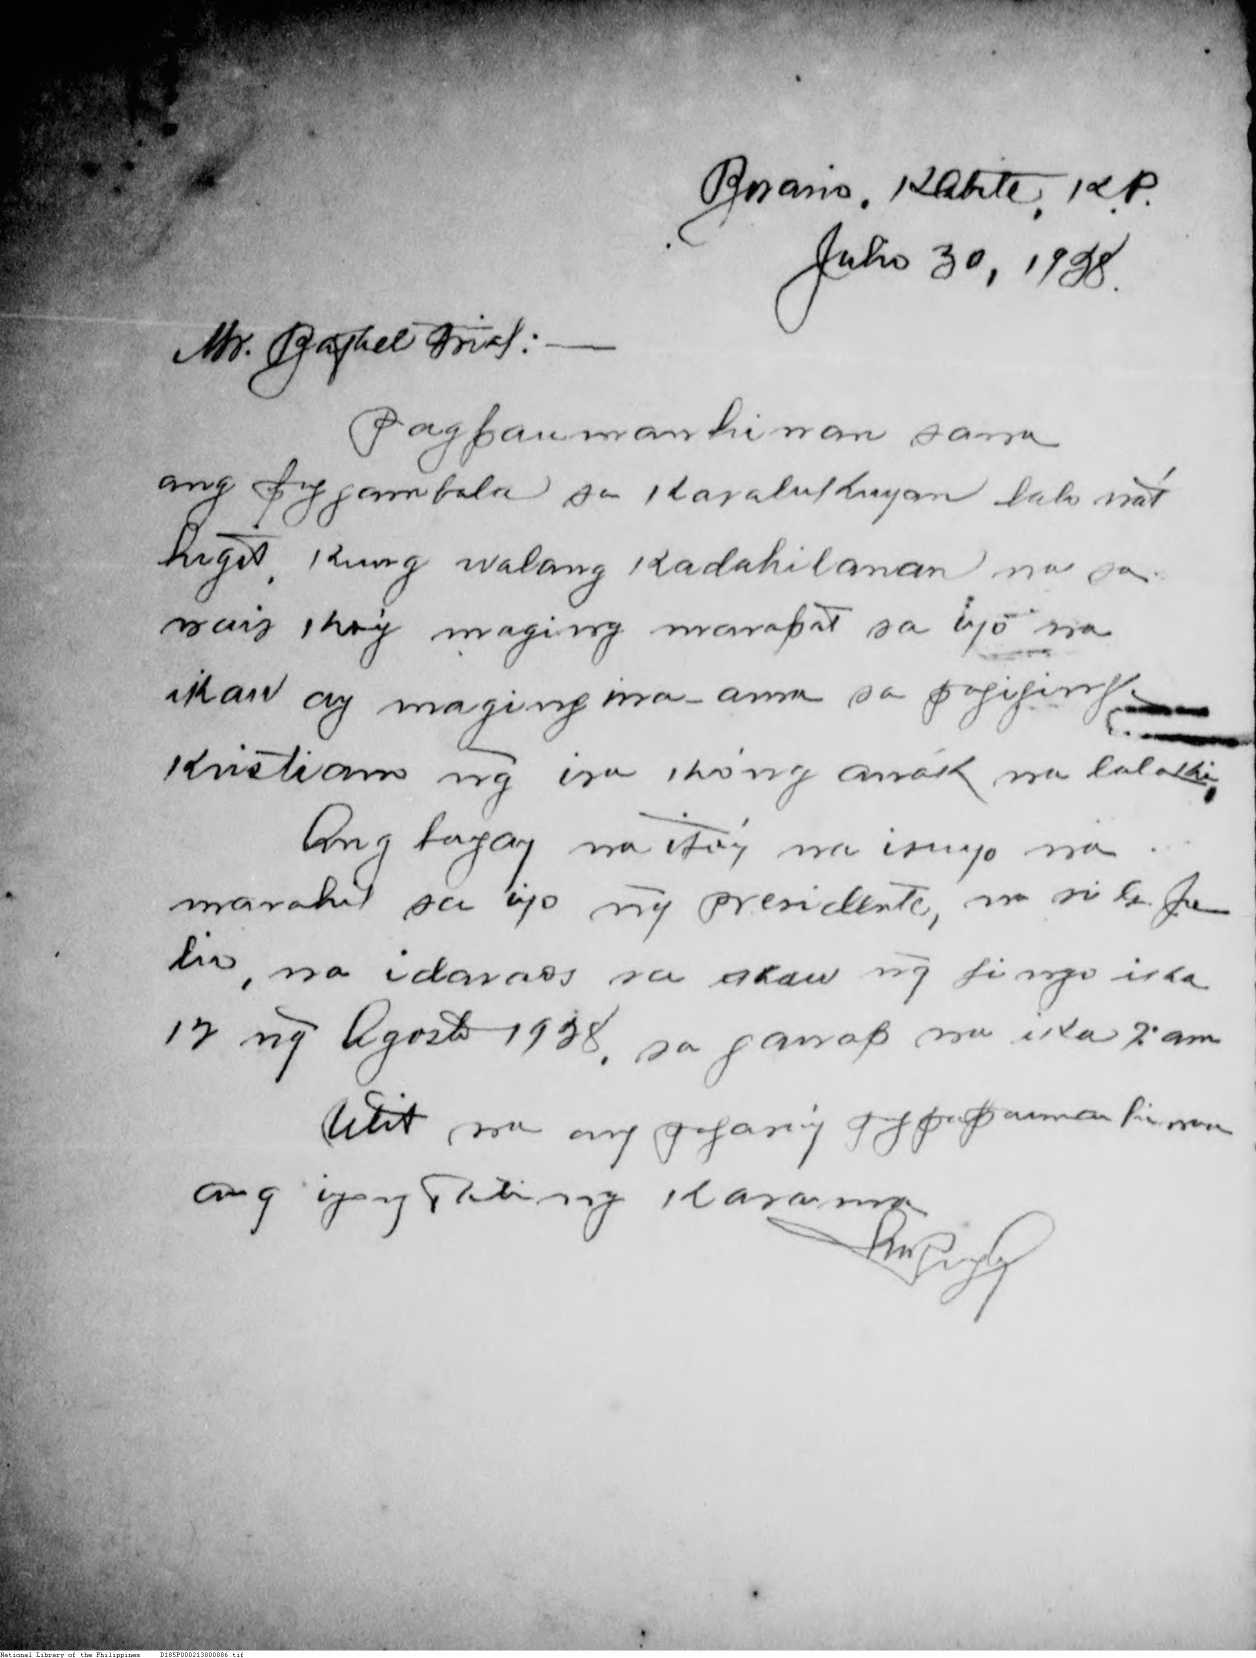 Rosario, Kabite, K.P.
Julio 30, 1938.
Mr. Raphel Trias:—
Pagpaumanhinan sana
ang paggambala sa karalukuyan lalo nat
higit, kung walang kadahilanan na sa
nais ko'y maging marapat sa iyo na
ikaw ay maging ina-ama sa pagiging
kristiano ng isa kong anak na lalaki,
Ang bagay na ito'y na isuyo na
marahil sa iyo ng presidente, na si G. Ju
lio, na idaraos sa araw ng lingo ika
17 ng Agosto 1938, sa ganap na ika 7: am
Ulit na ang pagpapaumanhinan
ang iyong dating kasama